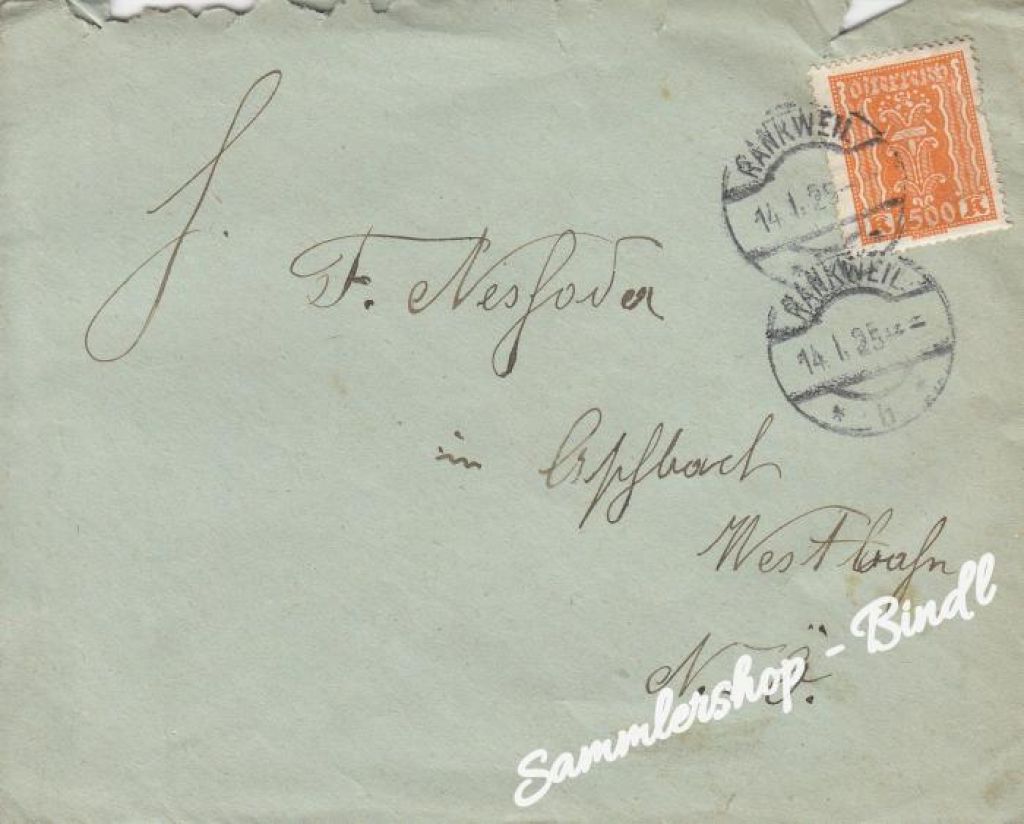 Österreich
K 500 K
RANKWEIL
14. I. 25
RANKWEIL
14. I. 25
* h *
F.
in Aschbach
Westbahn
N. Ö.
Sammlershop - Bindl